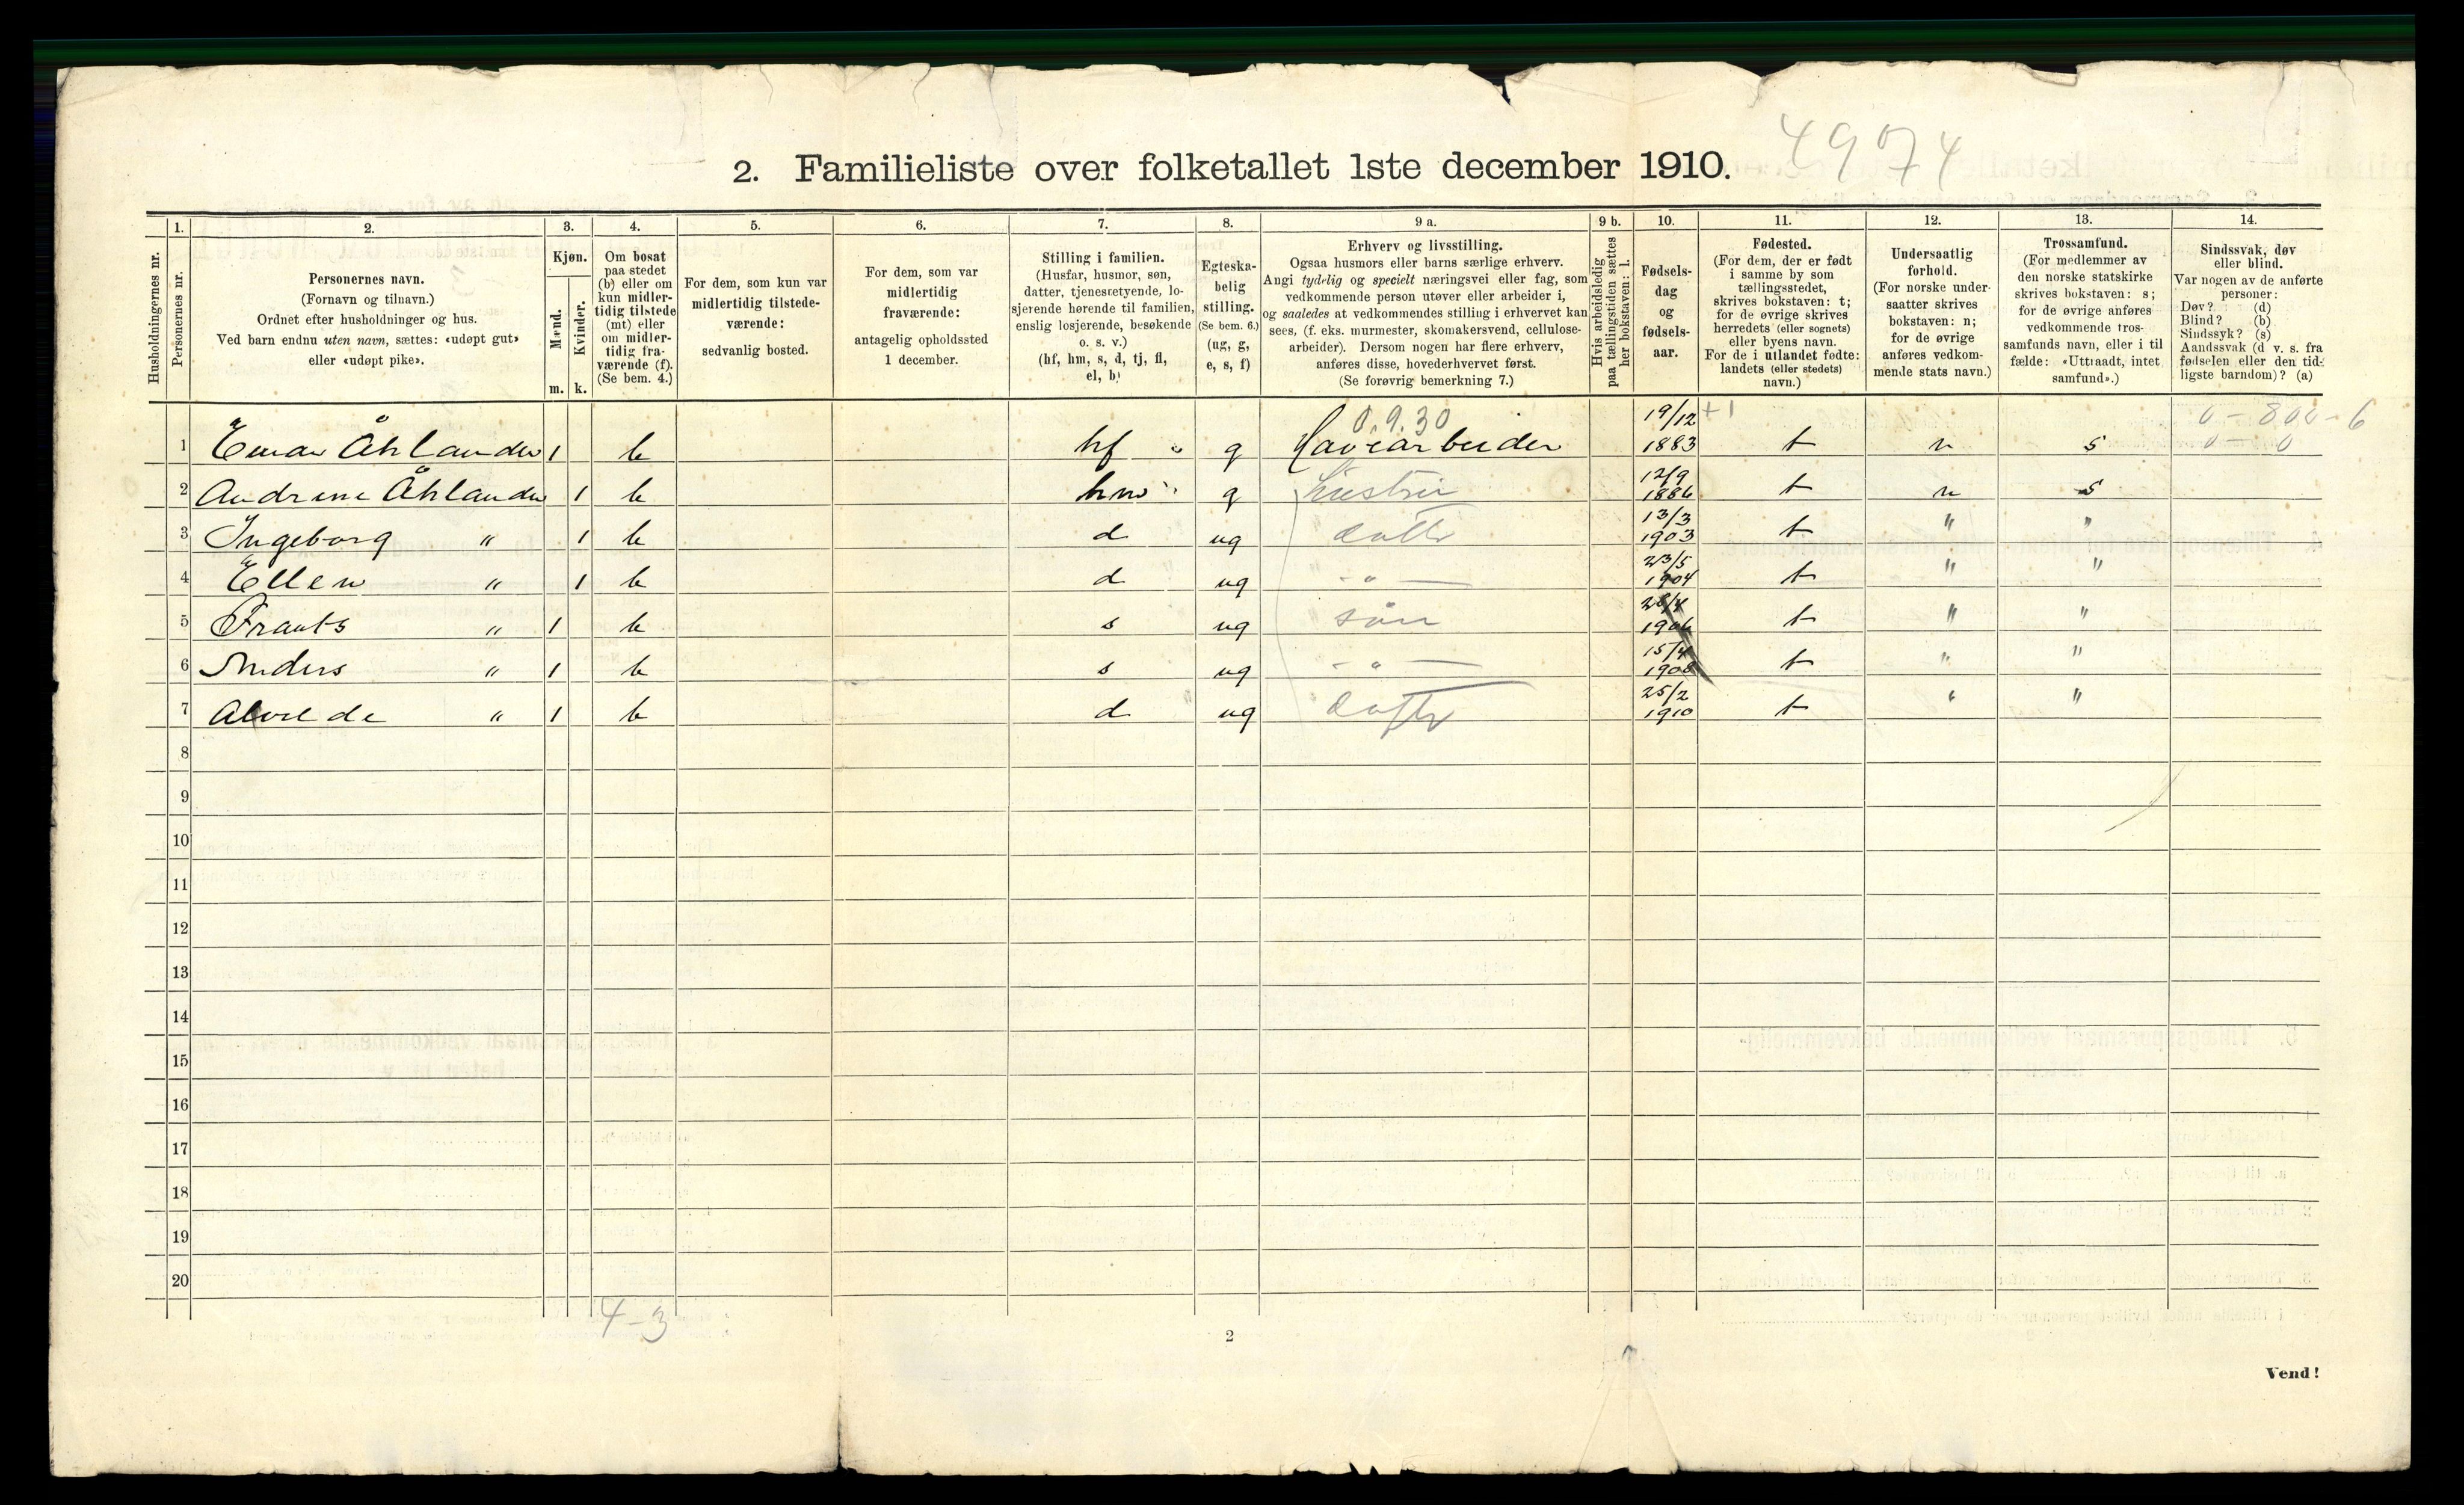 4974
2. Familieliste over folketallet 1ste december 1910.
Husholdningernes nr.
1. Personernes nr.
2. Personernes navn.
(Fornavn og tilnavn.)
Ordnet efter husholdninger og hus.
Ved barn endnu uten navn, sættes: «udøpt gut»
eller «udøpt pike».
3. Kjøn.
Mænd. m.
Kvinder. k.
4. Om bosat
paa stedet
(b) eller om
kun midler-
tidig tilstede
(mt) eller
om midler-
tidig fra-
værende (f).
(Se bem. 4.)
5. For dem, som kun var
midlertidig tilstede-
værende:
sedvanlig bosted.
6. For dem, som var
midlertidig
fraværende:
antagelig opholdssted
1 december.
7. Stilling i familien.
(Husfar, husmor, søn,
datter, tjenestetyende, lo-
sjerende hørende til familien,
enslig losjerende, besøkende
o. s. v.)
(hf, hm, s, d, tj, fl,
el, b)
8. Egteska-
belig
stilling.
(Se bem. 6.)
(ug, g,
e, s, f)
9 a. Erhverv og livsstilling.
Ogsaa husmors eller barns særlige erhverv.
Angi tydelig og specielt næringsvei eller fag, som
vedkommende person utøver eller arbeider i,
og saaledes at vedkommendes stilling i erhvervet kan
sees, (f. eks. murmester, skomakersvend, cellulose-
arbeider). Dersom nogen har flere erhverv,
anføres disse, hovederhvervet først.
(Se forøvrig bemerkning 7.)
9 b. Hvis arbeidsledig
paa tællingstiden sættes
her bokstaven: l.
10. Fødsels-
dag
og
fødsels-
aar.
11. Fødested.
(For dem, der er født
i samme by som
tællingsstedet,
skrives bokstaven: t;
for de øvrige skrives
herredets (eller sognets)
eller byens navn.
For de i utlandet fødte:
landets (eller stedets)
navn.)
12. Undersaatlig
forhold.
(For norske under-
saatter skrives
bokstaven: n;
for de øvrige
anføres vedkom-
mende stats navn.)
13. Trossamfund.
(For medlemmer av
den norske statskirke
skrives bokstaven: s;
for de øvrige anføres
vedkommende tros-
samfunds navn, eller i til
fælde: «Uttraadt, intet
samfund».)
14. Sindssvak, døv
eller blind.
Var nogen av de anførte
personer:
Døv? (d)
Blind? (b)
Sindssyk? (s)
Aandssvak (d v. s. fra
fødselen eller den tid-
ligste barndom)? (a)
0.9.30
1 Einar Åhlander 1 b hf g Havearbeider 19/12 1883 t n s
2 Andrine Åhlander 1 b hm g hustru 12/9 1886 t n s
3 Ingeborg " 1 b d ug datter 13/3 1903 t " "
4 Ellen " 1 b d ug - " - 23/5 1904 t " "
5 Frants " 1 b s ug søn 28/4 1906 t " "
6 Anders " 1 b s ug - " - 15/4 1908 t " "
7 " 1 b d ug datter 25/2 1910 t " "
8
9
10
11
12
13
14
15
16
17
18
19
20
4-3
2
Vend!